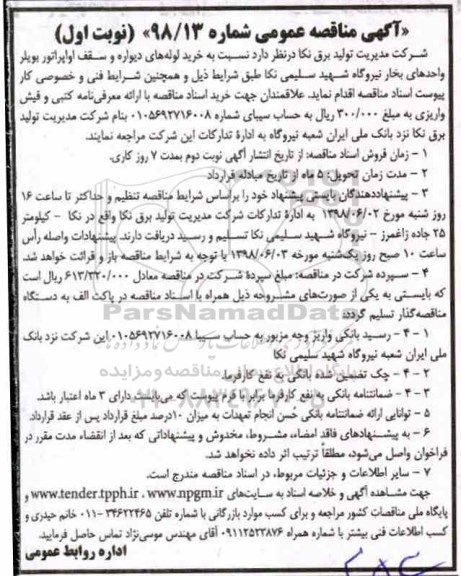 «آگهی مناقصه عمومی شماره ۹۸/۱۳» (نوبت اول)
شرکت مدیریت تولید برق نکا درنظر دارد نسبت به خرید لوله‌های دیواره و سقف اواپراتور بویلر
واحدهای بخار نیروگاه شهید سلیمی نکا طبق شرایط ذیل و همچنین شرایط فنی و خصوصی کار
پیوست اسناد مناقصه اقدام نماید. علاقمندان جهت خرید اسناد مناقصه با ارائه معرفی‌نامه کتبی و فیش
واریزی به مبلغ ۳۰۰/۰۰۰ ریال به حساب سیبای شماره ۰۱۰۵۶۹۲۷۱۶۰۰۸ بنام شرکت مدیریت تولید
برق نکا نزد بانک ملی ایران شعبه نیروگاه به ادارهٔ تدارکات این شرکت مراجعه نمایند.
۱ - زمان فروش اسناد مناقصه: از تاریخ انتشار آگهی نوبت دوم بمدت ۷ روز کاری.
۲ - مدت زمان تحویل: ۵ ماه از تاریخ مبادله قرارداد
۳ - پیشنهاددهندگان بایستی پیشنهاد خود را براساس شرایط مناقصه تنظیم و حداکثر تا ساعت ۱۶
روز شنبه مورخ ۱۳۹۸/۰۶/۰۲ به ادارهٔ تدارکات شرکت مدیریت تولید برق نکا واقع در نکا - کیلومتر
۲۵ جاده زاغمرز - نیروگاه شهید سلیمی نکا تسلیم و رسید دریافت دارند. پیشنهادات واصله رأس
ساعت ۱۰ صبح روز یک‌شنبه مورخه ۱۳۹۸/۰۶/۰۳ با توجه به شرایط مناقصه باز و قرائت خواهد شد.
۴ - سپرده شرکت در مناقصه: مبلغ سپردهٔ شرکت در مناقصه معادل ۶۱۳/۳۲۰/۰۰۰ ریال است
که بایستی به یکی از صورت‌های مشروحه ذیل همراه با اسناد مناقصه در پاکت الف به دستگاه
مناقصه‌گذار تسلیم گردد:
۱ - ۴ - رسید بانکی واریز وجه مزبور به حساب سیبا ۰۱۰۵۶۹۲۷۱۶۰۰۸ این شرکت نزد بانک
ملی ایران شعبه نیروگاه شهید سلیمی نکا
۲ - ۴ - چک تضمین شده بانکی به نفع کارفرما.
۳ - ۴ - ضمانتنامه بانکی به نفع کارفرما برابر با فرم پیوست که می‌بایست دارای ۳ ماه اعتبار باشد.
۵ - توانایی ارائه ضمانتنامه بانکی حُسن انجام تعهدات به میزان ۱۰درصد مبلغ قرارداد پس از عقد قرارداد.
۶ - به پیشنهادهای فاقد امضاء، مشروط، مخدوش و پیشنهاداتی که بعد از انقضاء مدت مقرر در
فراخوان واصل می‌شود، مطلقاً ترتیب اثر داده نخواهد شد.
۷ - سایر اطلاعات و جزئیات مربوط، در اسناد مناقصه مندرج است.
جهت مشاهده آگهی و خلاصه اسناد به سایت‌های www.tender.tpph.ir ، www.npgm.ir و
پایگاه ملی مناقصات کشور مراجعه و برای کسب موارد بازرگانی با شماره تلفن ۳۴۶۲۲۴۶۵-۰۱۱ خانم حیدری و
کسب اطلاعات فنی بیشتر با شماره همراه ۰۹۱۱۲۵۲۳۸۷۶ آقای مهندس موسی‌نژاد تماس حاصل فرمایید.
اداره روابط عمومی
ParsNamadData